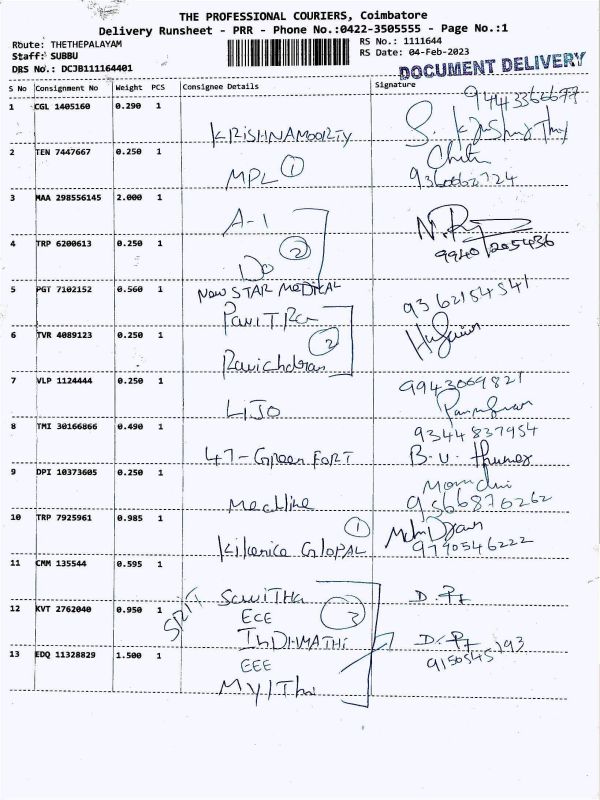 THE PROFESSIONAL COURIERS, Coimbatore
Delivery Runsheet - PRR - Phone No.:0422-3505555 - Page No.:1
Route: THETHEPALAYAM
Staff: SUBBU
DRS No.: DCJB111164401
RS No.: 1111644
RS Date: 04-Feb-2023
DOCUMENT DELIVERY
S No Consignment No Weight PCS Consignee Details Signature
1 CGL 1405160 0.290 1
KRISHNAMOORTY
2 TEN 7447667 0.250 1
MPL 1
3 MAA 298556145 2.000 1
A-1
9940205436
4 TRP 6200613 0.250 1
Do 2
5 PGT 7102152 0.560 1
New STAR MEDICAL
9362154541
6 TVR 4089123 0.250 1
2
Ravichdran
7 VLP 1124444 0.250 1
9943069821
LIJO
8 TMI 30166866 0.490 1
9344837954
47-Green FORT
B.U.
9 DPI 10373605 0.250 1
Medline
9566876262
10 TRP 7925961 0.985 1
1
9790546222
11 CMM 135544 0.595 1
SawiTha
D.
12 KVT 2762040 0.950 1
ECE
3
InDHMATHi
D.
13 EDQ 11328829 1.500 1
EEE
9150545793